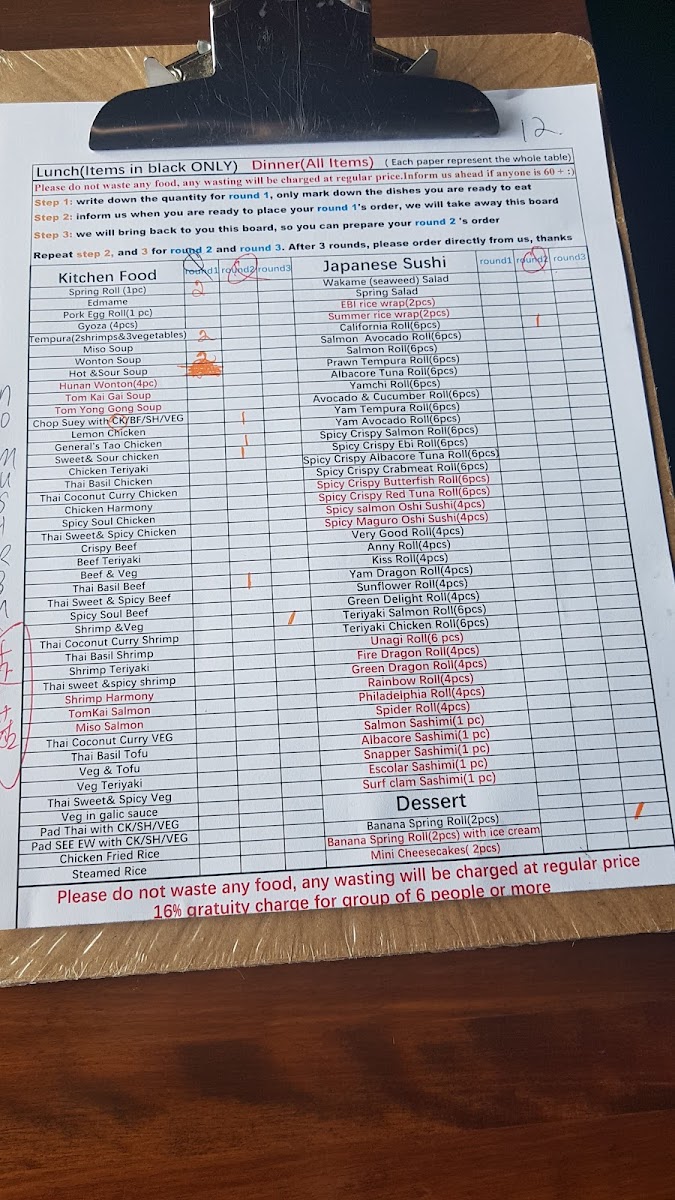 12
Lunch(Items in black ONLY) Dinner(All Items) ( Each paper represent the whole table)
Please do not waste any food, any wasting will be charged at regular price.Inform us ahead if anyone is 60 + :)
Step 1: write down the quantity for round 1, only mark down the dishes you are ready to eat
Step 2: inform us when you are ready to place your round 1's order, we will take away this board
Step 3: we will bring back to you this board, so you can prepare your round 2 's order
Repeat step 2, and 3 for round 2 and round 3. After 3 rounds, please order directly from us, thanks
Kitchen Food round1 round2 round3
Spring Roll (1pc) 2
Edmame
Pork Egg Roll(1 pc)
Gyoza (4pcs)
Tempura(2shrimps&3vegetables) 2
Miso Soup
Wonton Soup 2
Hot &Sour Soup
Hunan Wonton(4pc)
Tom Kai Gai Soup
Tom Yong Gong Soup
Chop Suey with CK/BF/SH/VEG 1
Lemon Chicken
General's Tao Chicken 1
Sweet& Sour chicken 1
Chicken Teriyaki
Thai Basil Chicken
Thai Coconut Curry Chicken
Chicken Harmony
Spicy Soul Chicken
Thai Sweet& Spicy Chicken
Crispy Beef
Beef Teriyaki
Beef & Veg
Thai Basil Beef 1
Thai Sweet & Spicy Beef
Spicy Soul Beef
Shrimp &Veg 1
Thai Coconut Curry Shrimp
Thai Basil Shrimp
Shrimp Teriyaki
Thai sweet &spicy shrimp
Shrimp Harmony
TomKai Salmon
Miso Salmon
Thai Coconut Curry VEG
Thai Basil Tofu
Veg & Tofu
Veg Teriyaki
Thai Sweet& Spicy Veg
Veg in galic sauce
Pad Thai with CK/SH/VEG
Pad SEE EW with CK/SH/VEG
Chicken Fried Rice
Steamed Rice
Japanese Sushi round1 round2 round3
Wakame (seaweed) Salad
Spring Salad
EBI rice wrap(2pcs)
Summer rice wrap(2pcs)
California Roll(6pcs) 1
Salmon Avocado Roll(6pcs)
Salmon Roll(6pcs)
Prawn Tempura Roll(6pcs)
Albacore Tuna Roll(6pcs)
Yamchi Roll(6pcs)
Avocado & Cucumber Roll(6pcs)
Yam Tempura Roll(6pcs)
Yam Avocado Roll(6pcs)
Spicy Crispy Salmon Roll(6pcs)
Spicy Crispy Ebi Roll(6pcs)
Spicy Crispy Albacore Tuna Roll(6pcs)
Spicy Crispy Crabmeat Roll(6pcs)
Spicy Crispy Butterfish Roll(6pcs)
Spicy Crispy Red Tuna Roll(6pcs)
Spicy salmon Oshi Sushi(4pcs)
Spicy Maguro Oshi Sushi(4pcs)
Very Good Roll(4pcs)
Anny Roll(4pcs)
Kiss Roll(4pcs)
Yam Dragon Roll(4pcs)
Sunflower Roll(4pcs)
Green Delight Roll(4pcs)
Teriyaki Salmon Roll(6pcs)
Teriyaki Chicken Roll(6pcs)
Unagi Roll(6 pcs)
Fire Dragon Roll(4pcs)
Green Dragon Roll(4pcs)
Rainbow Roll(4pcs)
Philadelphia Roll(4pcs)
Spider Roll(4pcs)
Salmon Sashimi(1 pc)
Albacore Sashimi(1 pc)
Snapper Sashimi(1 pc)
Escolar Sashimi(1 pc)
Surf clam Sashimi(1 pc)
Dessert
Banana Spring Roll(2pcs) 1
Banana Spring Roll(2pcs) with ice cream
Mini Cheesecakes( 2pcs)
Please do not waste any food, any wasting will be charged at regular price
16% gratuity charge for group of 6 people or more